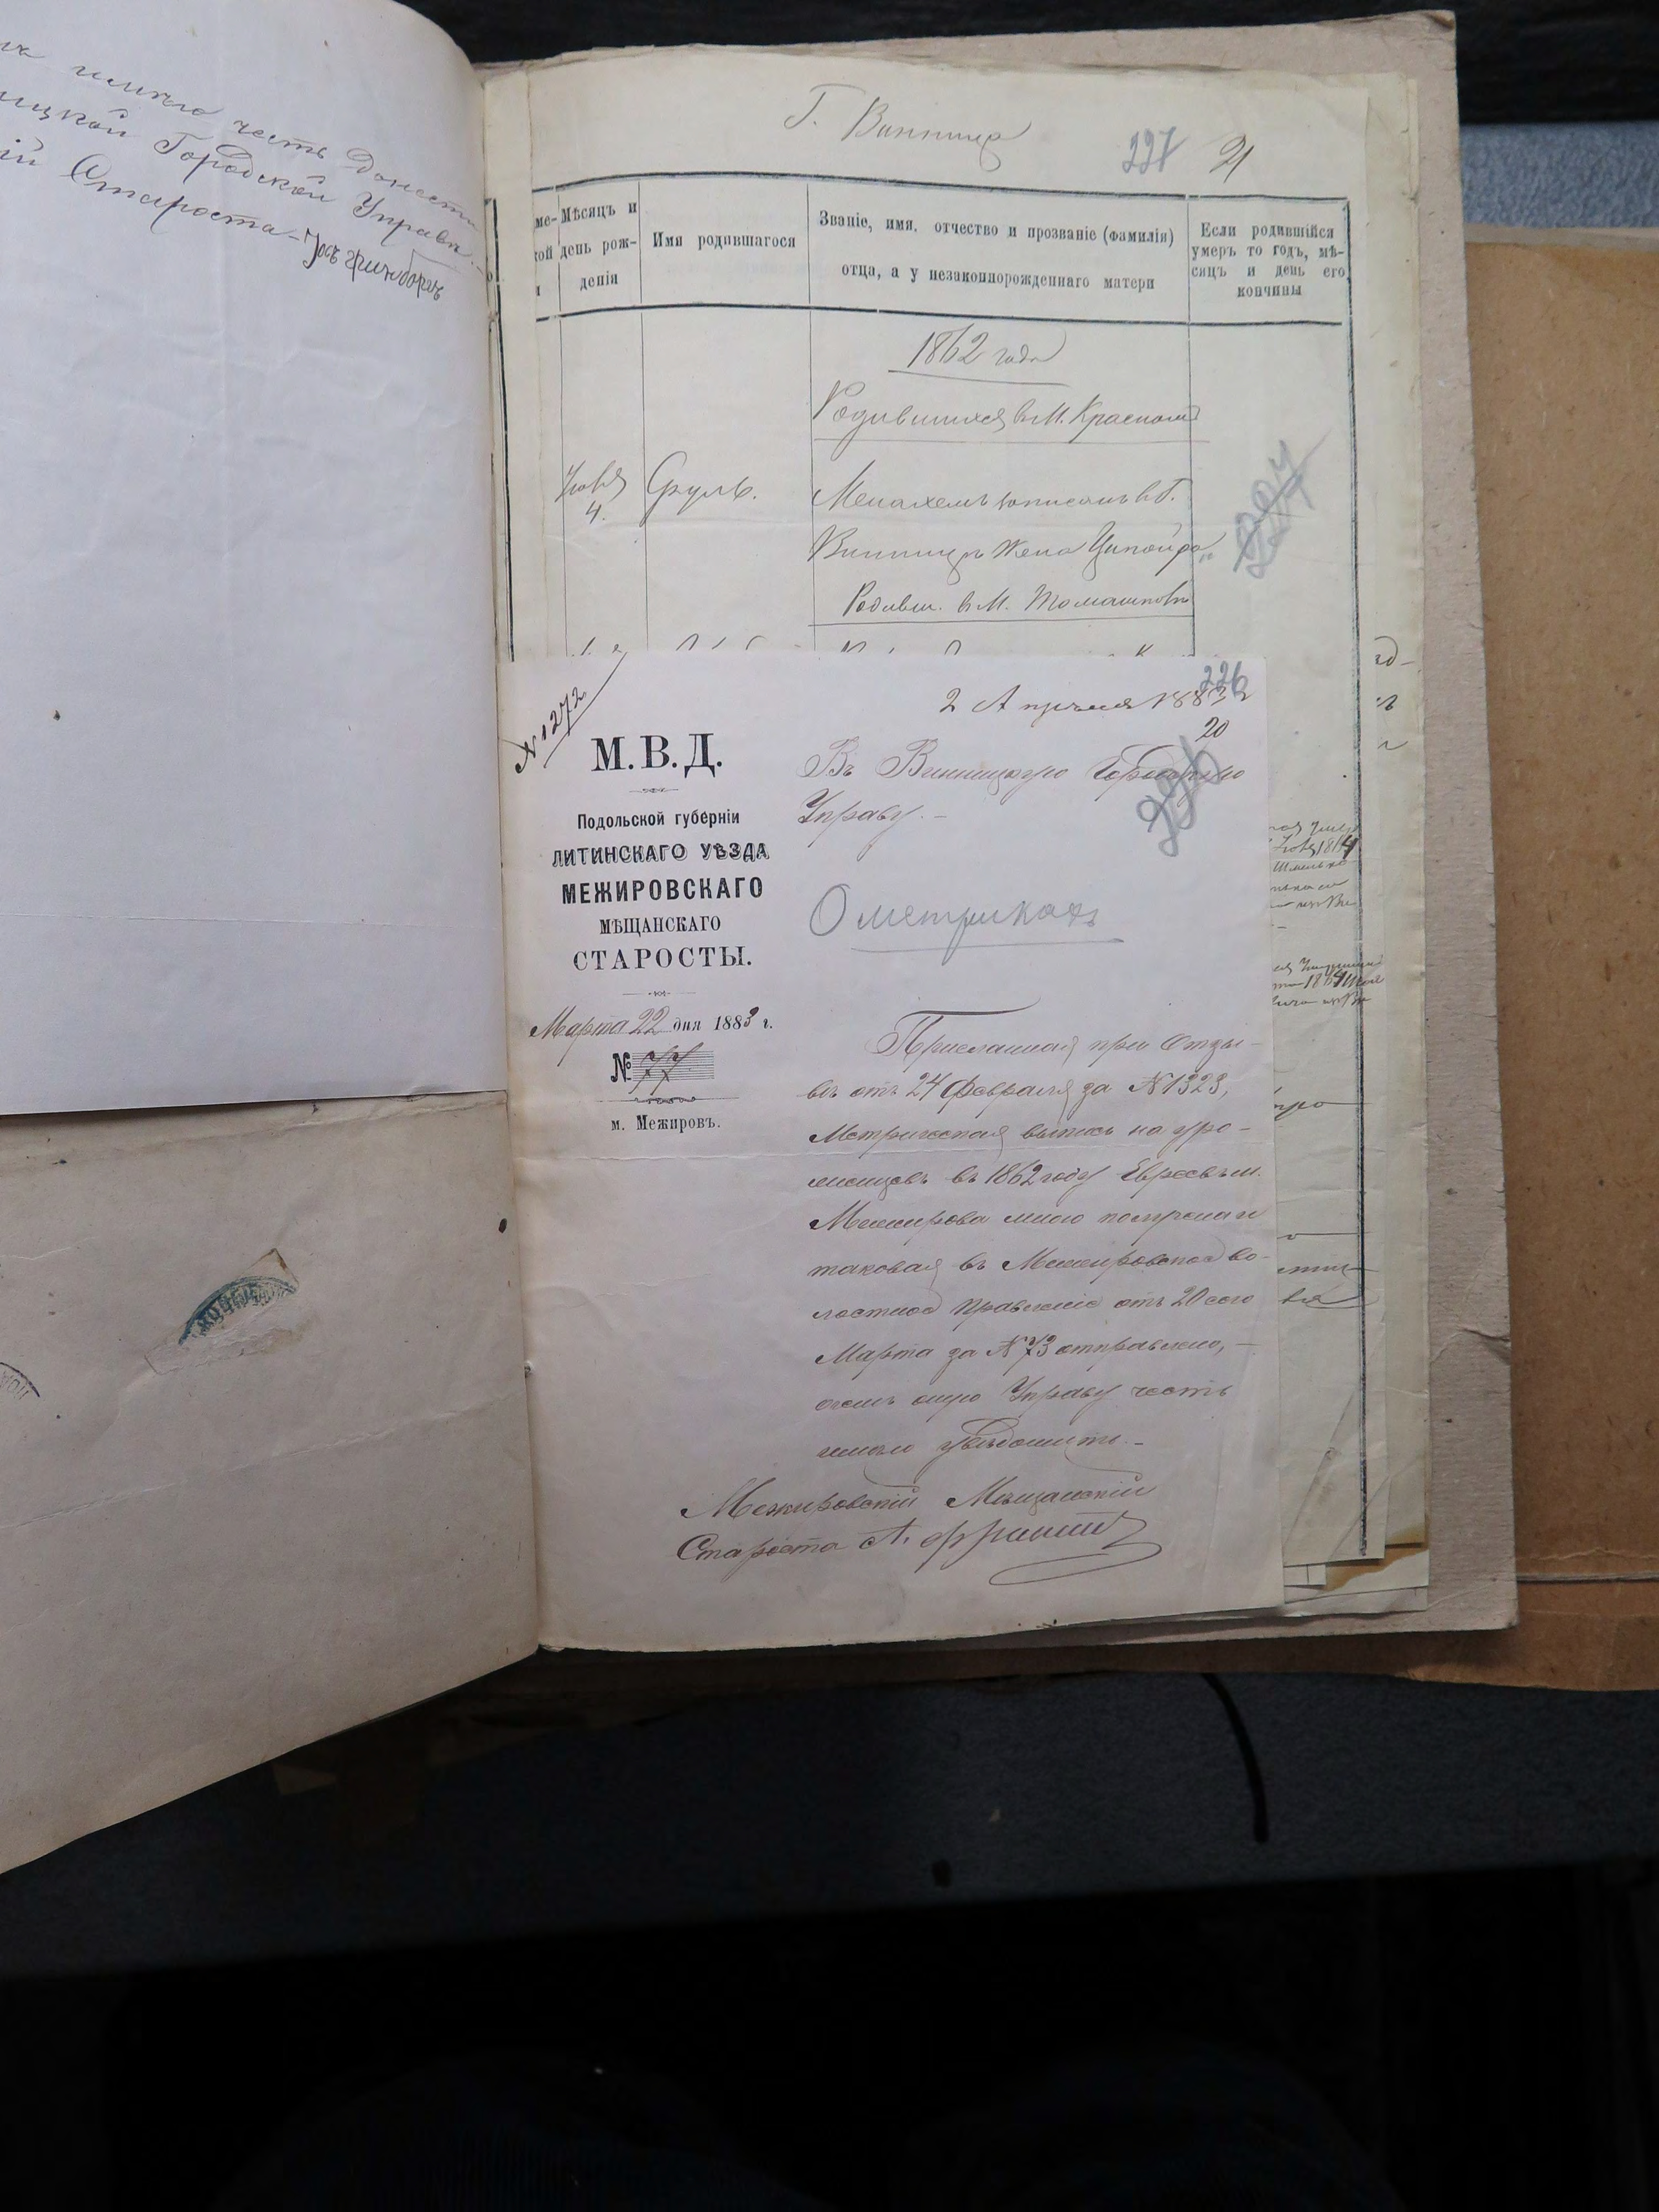 имѣю честь донести
Городской Управѣ.
Староста
Г. Винница
227 21
Мѣсяцъ и день рожденія
Имя родившагося
Званіе, имя, отчество и прозваніе (фамилія)
отца, а у незаконнорожденнаго матери
Если родившійся
умеръ то годъ, мѣ-
сяцъ и день его
кончины
1862 года
Родившихся в М. Красномъ
4. Сруль. Менахемъ записанъ в г.
Винницѣ жена Ципойра
Родивш. в М. Томашполѣ
226
2 Апрѣля 1883 г
20
№ 1272
М. В. Д.
Подольской губерніи
ЛИТИНСКАГО УѢЗДА
МЕЖИРОВСКАГО
МѢЩАНСКАГО
СТАРОСТЫ.
Марта 22 дня 1883 г.
№ 77
м. Межировъ.
Въ Винницкую Городскую
Управу.
О метрикахъ
Присланная при Отзы-
вѣ отъ 24 Февраля за № 1323,
Метрическая выпись на уро-
женцевъ въ 1862 году Евреевъ м.
Межирова мною получена и
таковая въ Межировское во-
лостное Правленіе отъ 20 сего
Марта за № 73 отправлено, -
о чемъ оную Управу честь
имѣю увѣдомить. -
Межировскій Мѣщанскій
Староста А.